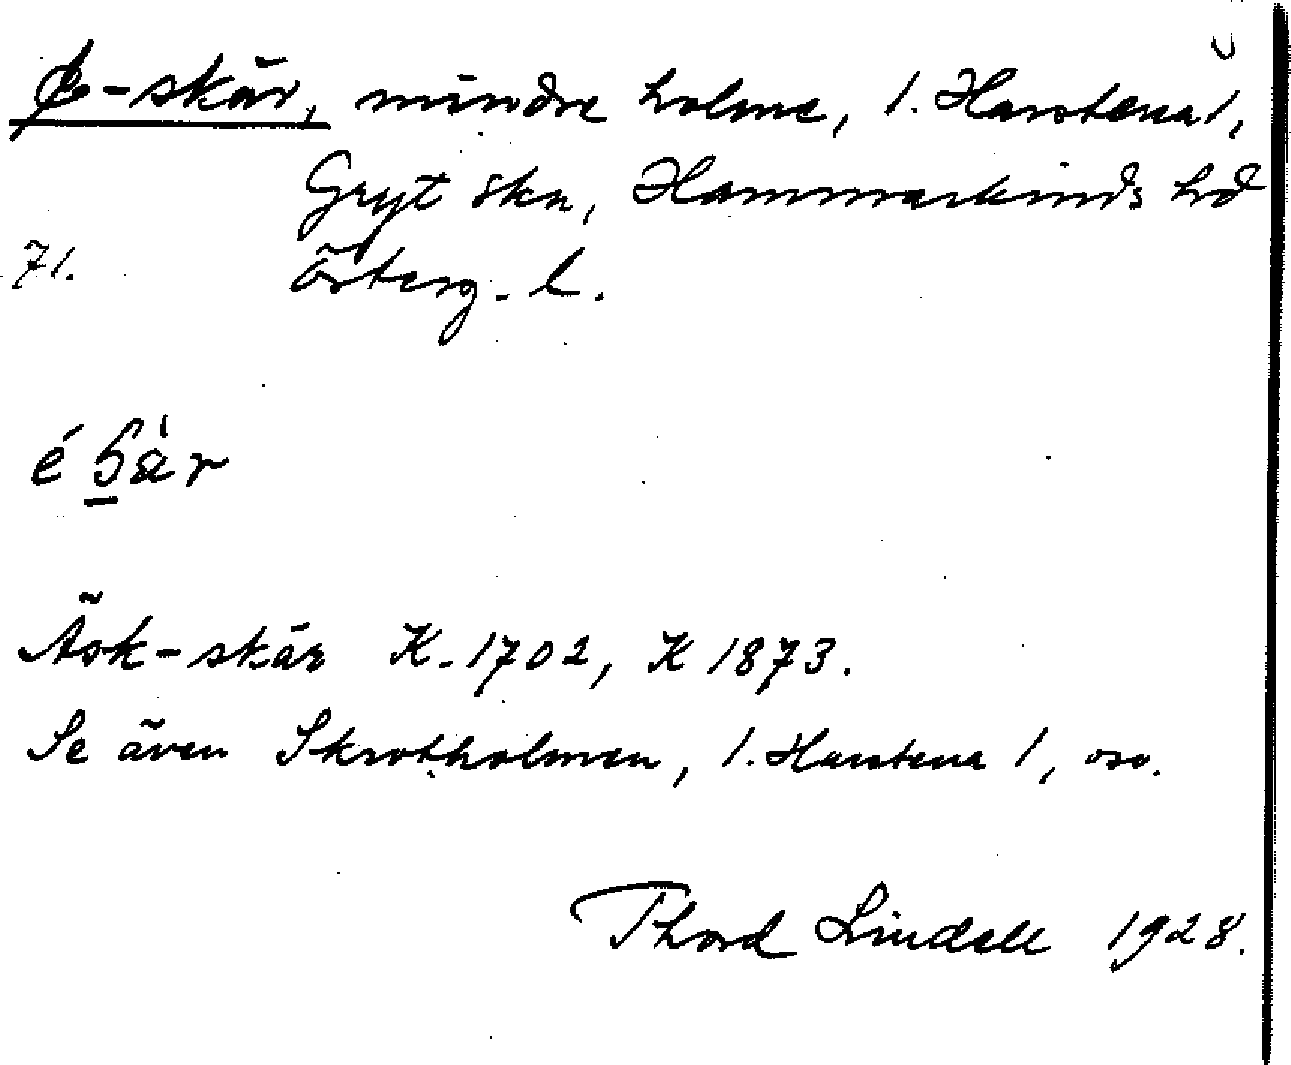 E-skär, mindre holme, l. Harstena 1,
Gryt skn, Hammarkinds hd
71. Österg. l.
Äsk-skär K. 1702, K 1873.
Se även Skrotholmen, l. Harstena 1, oso.
Thord Lindell 1928.